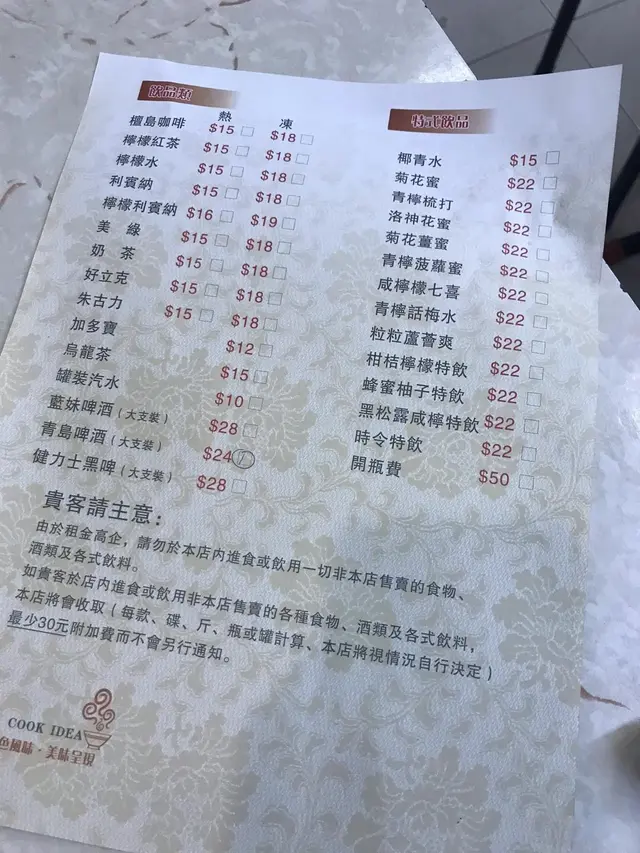 飲品類
熱 凍
檀島咖啡 $15 $18
檸檬紅茶 $15 $18
檸檬水 $15 $18
利賓納 $15 $18
檸檬利賓納 $16 $19
美 綠 $15 $18
奶 茶 $15 $18
好立克 $15 $18
朱古力 $15 $18
加多寶 $12
烏龍茶 $15
罐裝汽水 $10
藍妹啤酒(大支裝) $28
青島啤酒(大支裝) $24
健力士黑啤(大支裝) $28
特式飲品
椰青水 $15
菊花蜜 $22
青檸梳打 $22
洛神花蜜 $22
菊花薑蜜 $22
青檸菠蘿蜜 $22
咸檸檬七喜 $22
青檸話梅水 $22
粒粒蘆薈爽 $22
柑桔檸檬特飲 $22
蜂蜜柚子特飲 $22
黑松露咸檸特飲 $22
時令特飲 $22
開瓶費 $50
貴客請主意:
由於租金高企,請勿於本店內進食或飲用一切非本店售賣的食物、
酒類及各式飲料。
如貴客於店內進食或飲用非本店售賣的各種食物、酒類及各式飲料,
本店將會收取(每款、碟、斤、瓶或罐計算、本店將視情況自行決定)
最少30元附加費而不會另行通知。
COOK IDEA
色風味·美味呈現